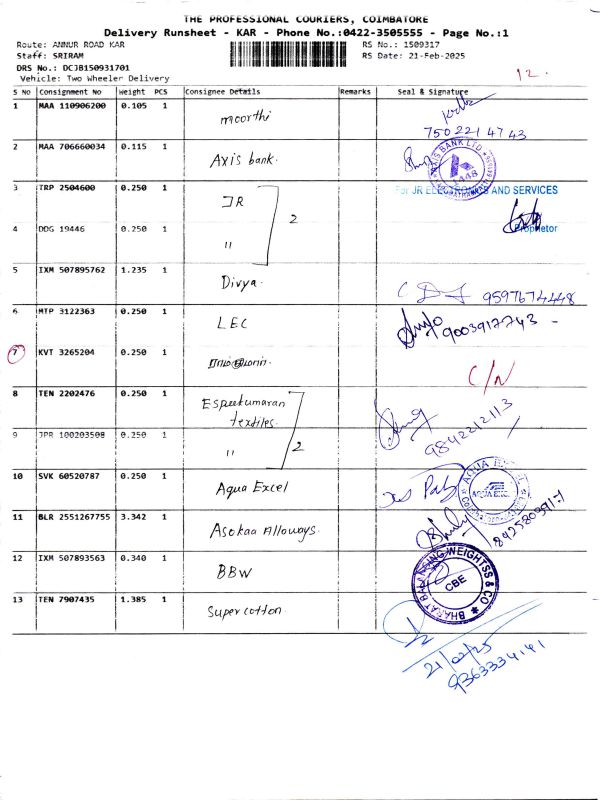 THE PROFESSIONAL COURIERS, COIMBATORE
Delivery Runsheet - KAR - Phone No.:0422-3505555 - Page No.:1
Route: ANNUR ROAD KAR
RS No.: 1509317
Staff: SRIRAM
RS Date: 21-Feb-2025
DRS No.: DCJB150931701
Vehicle: Two Wheeler Delivery
12.
S No Consignment No Weight PCS Consignee Details Remarks Seal & Signature
1 MAA 110906200 0.105 1 moorthi
7502214743
2 MAA 706660034 0.115 1 Axis bank.
AXIS BANK LTD.
1448
3 TRP 2504600 0.250 1 JR
For JR ELECTRONICS AND SERVICES
2
4 DDG 19446 0.250 1 "
Proprietor
5 IXM 507895762 1.235 1 Divya.
9597674448
6 MTP 3122363 0.250 1 LEC
9003917743 -
7 KVT 3265204 0.250 1
C/N
8 TEN 2202476 0.250 1 Espeekumaran textiles.
9842212113
9 JPR 100203508 0.250 1 "
2
10 SVK 60520787 0.250 1 Aqua Excel
AQUA EXCEL
AQUA EXCEL
11 BLR 2551267755 3.342 1 Asokaa Alloways.
12 IXM 507893563 0.340 1 BBW
BHARAT BALANCING WEIGHTSS & CO
CBE
13 TEN 7907435 1.385 1 Super cotton.
21/02/25
9363334141